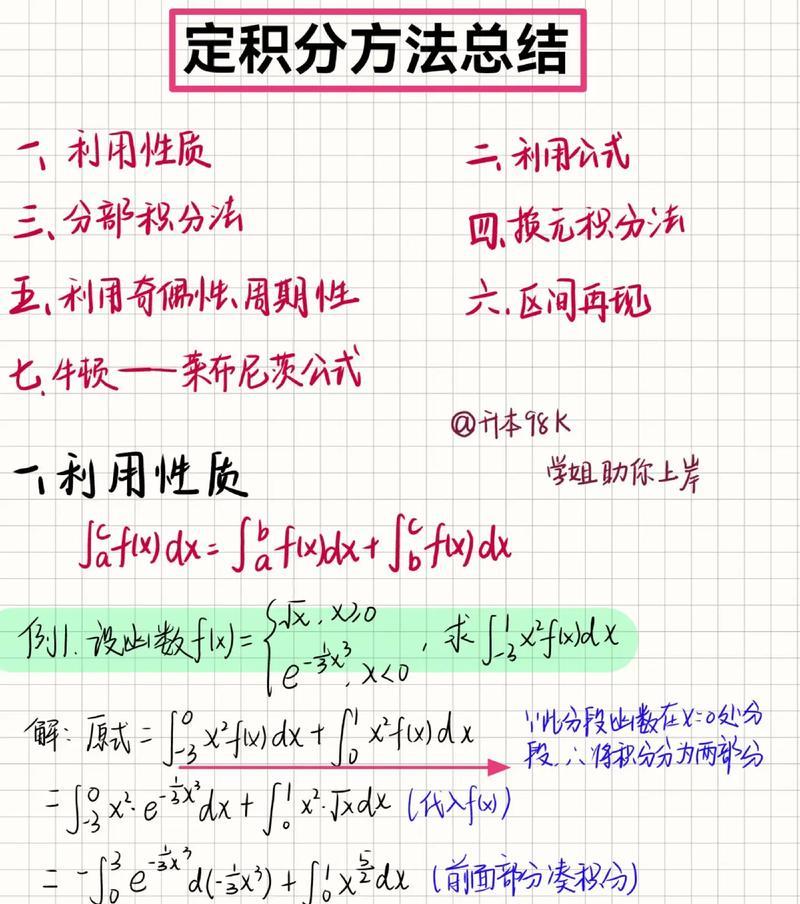 定积分方法总结
一、利用性质 二、利用公式
三、分部积分法 四、换元积分法
五、利用奇偶性、周期性 六、区间再现
七、牛顿——莱布尼茨公式
@升本98K
学姐助你上岸
一、利用性质
∫ₐᶜf(x)dx=∫ₐᵇf(x)dx+∫ᵇᶜf(x)dx
例1.设函数f(x)={√x, x≥0
e^{-1/3x³}, x<0 ,求∫₋₃¹x²f(x)dx
解:原式=∫₋₃⁰x²f(x)dx+∫₀¹x²f(x)dx
∵此分段函数在x=0处分
段,∴将积分分为两部分
=∫₋₃⁰x²·e^{-1/3x³}dx+∫₀¹x²·√xdx (代入f(x))
=-∫₀³e^{-1/3x³}d(-1/3x³)+∫₀¹x^{5/2}dx (前面部分凑积分)